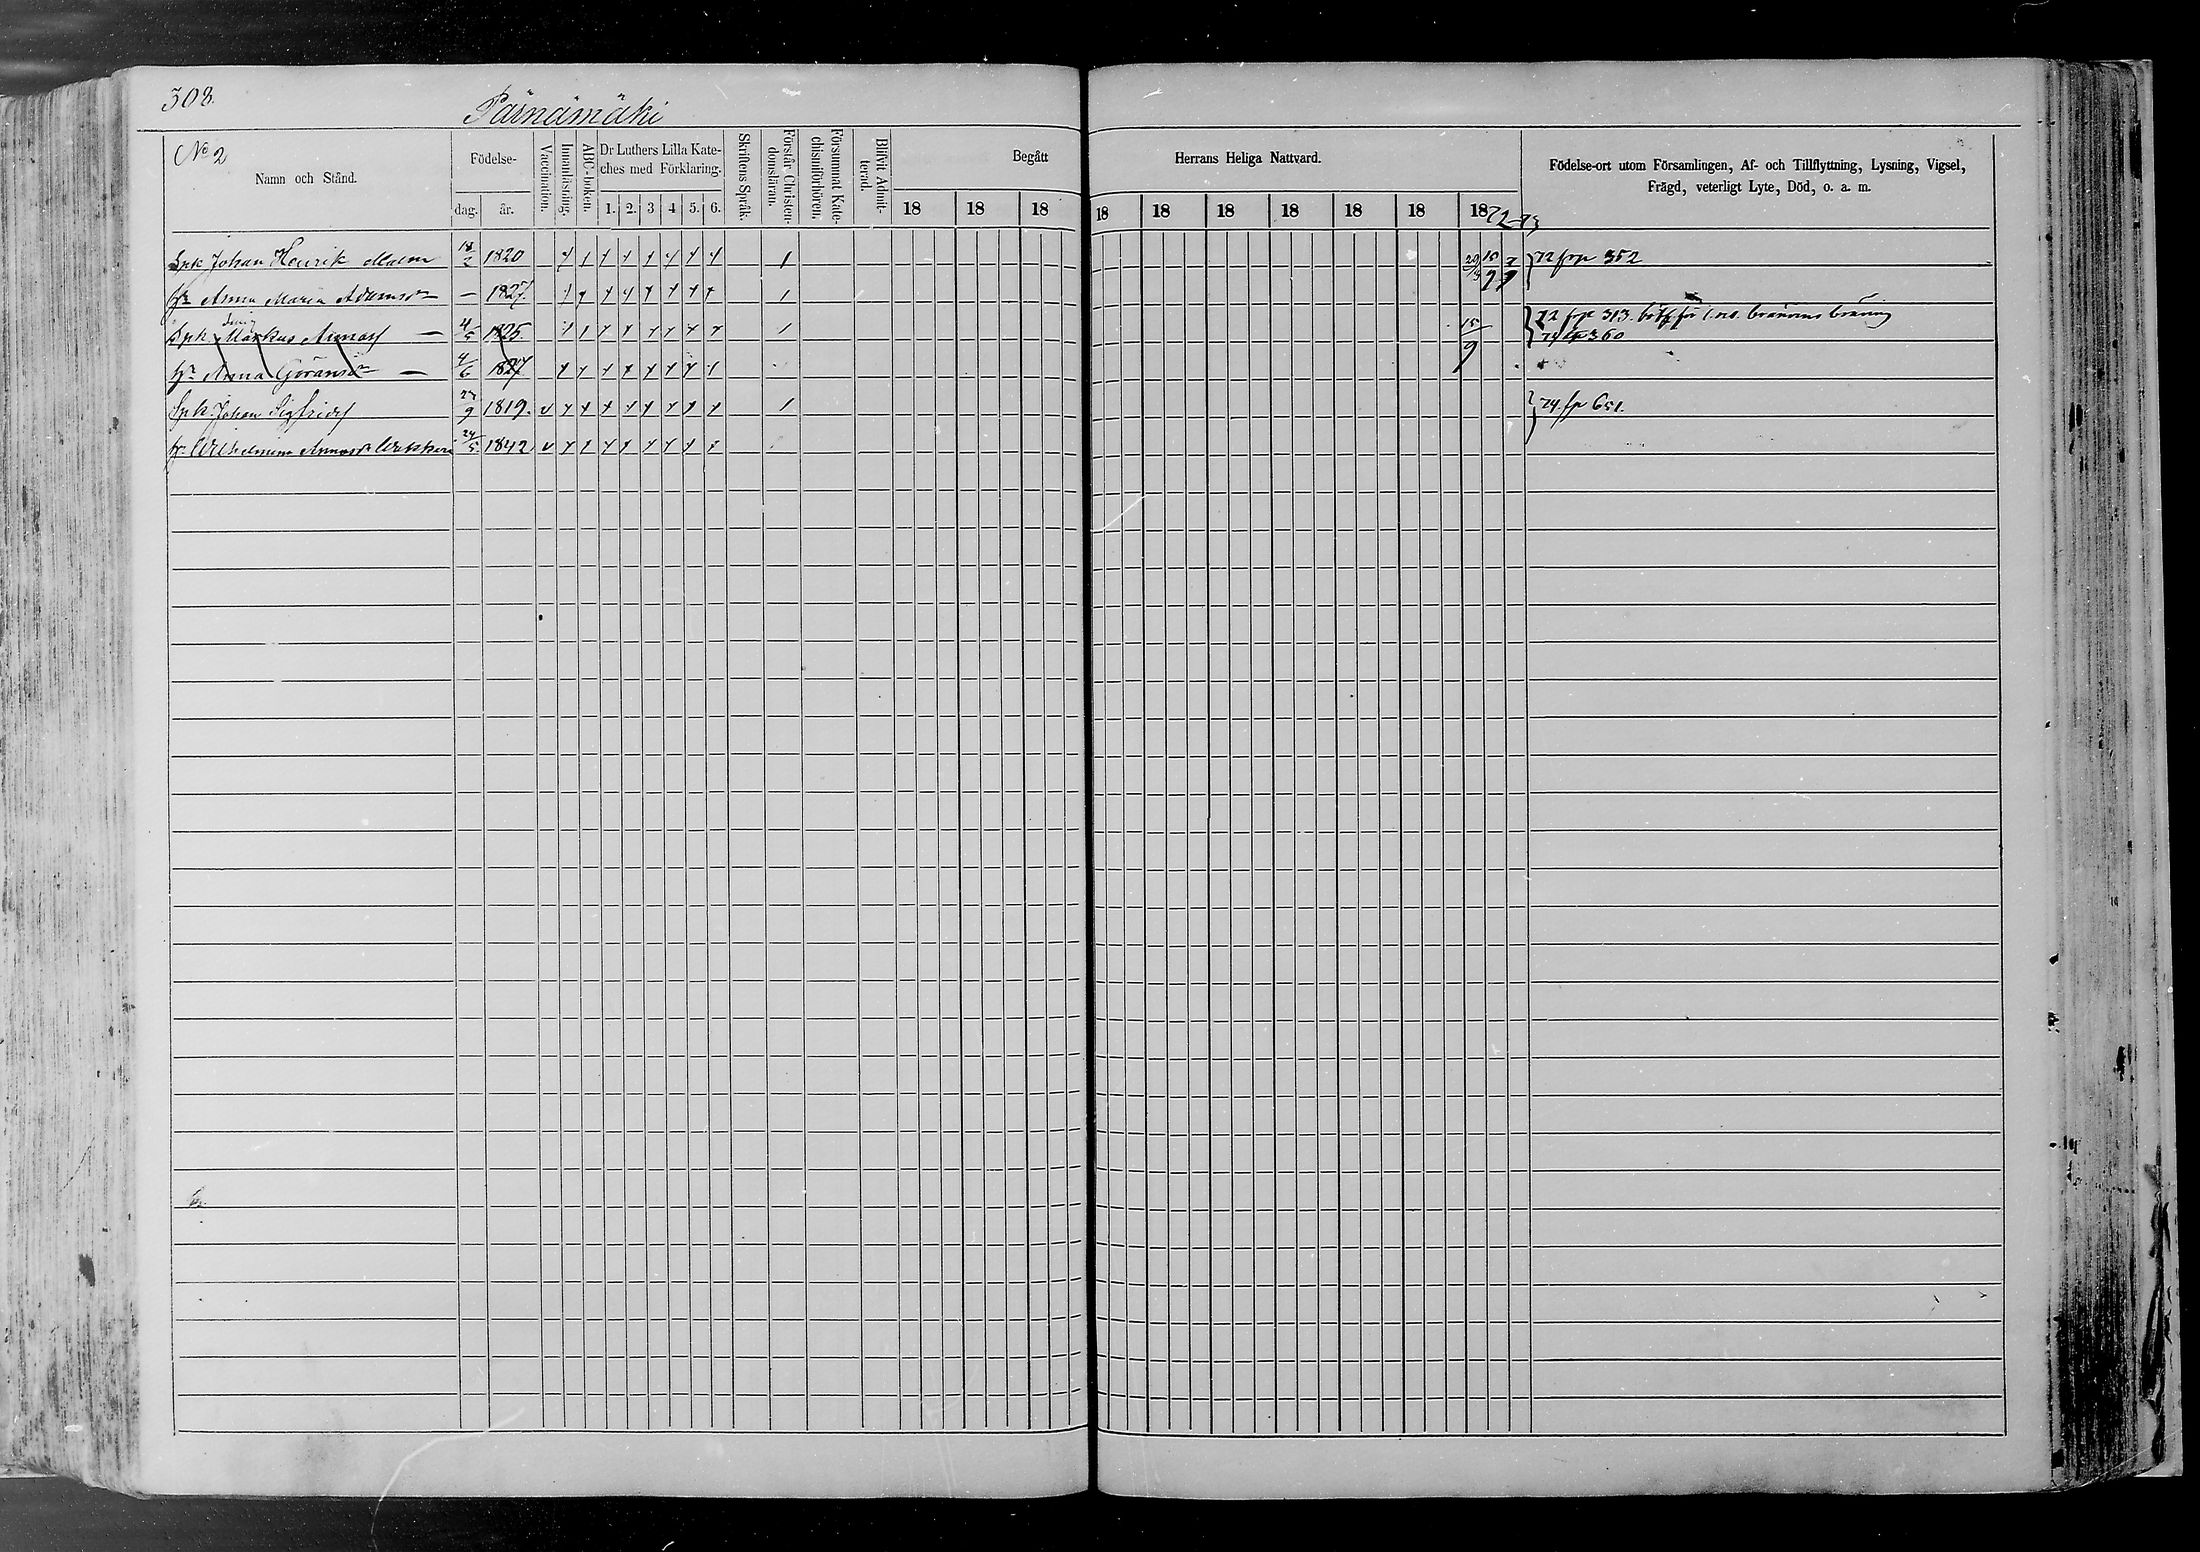 308.
Päinämäki
No 2
Namn och Stånd.
Födelse-
dag. år.
Vaccination.
Innanläsning.
ABC-boken.
Dr Luthers Lilla Kate-
ches med Förklaring.
1. 2. 3 4 5. 6.
Skriftens Språk.
Förstår Christen-
domsläran.
Försummat Kate-
chismiförhören.
Blifvit Admit-
terad.
Begått
Herrans Heliga Nattvard.
18 18 18 18 18 18 18 18 18 1872-73
Födelse-ort utom Församlingen, Af- och Tillflyttning, Lysning, Vigsel,
Frägd, veterligt Lyte, Död, o. a. m.
Spk Johan Henrik Malm 18/2 1820 72 frp 352
Hu Anna Maria Adamsdr — 1827.
Spk Markus Annasf — 4/5 1825. 15/9 72 frp 313.
74 tp 360
Hu Anna Göransdr — 4/6 1827
Spk. Johan Sigfridsf 27/9 1819. v 74. fp 651.
Hu Wilhelmina 24/5 1842 v